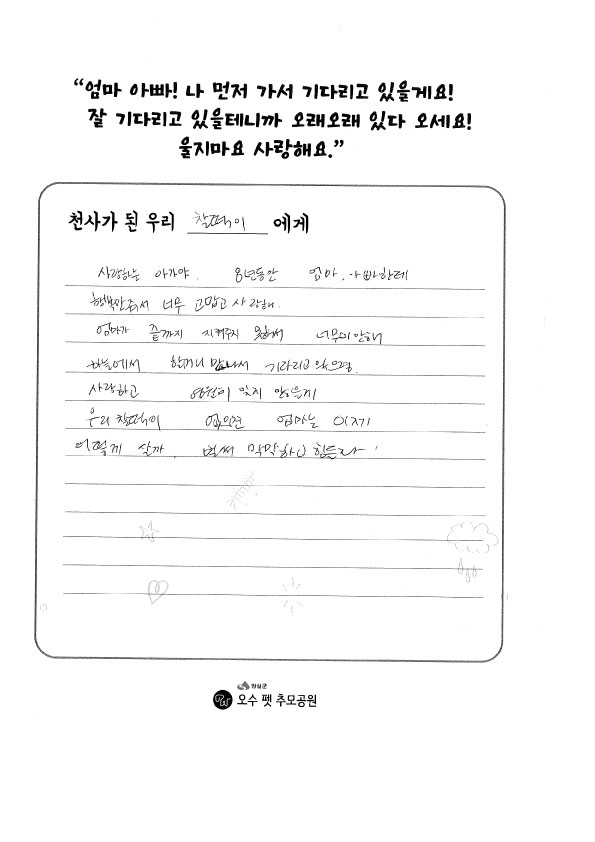 “엄마 아빠! 나 먼저 가서 기다리고 있을게요!
잘 기다리고 있을테니까 오래오래 있다 오세요!
울지마요 사랑해요.”
천사가 된 우리 찰떡이 에게
사랑하는 아가야. 8년동안 엄마, 아빠한테
행복만줘서 너무 고맙고 사랑해.
엄마가 끝까지 지켜주지 못해서 너무미안해
하늘에서 할머니 만나서 기다리고 있으렴.
사랑하고 영원히 잊지 않을게
우리 찰떡이 없으면 엄마는 이제
어떻게 살까. 벌써 막막하고 힘들다
임실군
오수 펫 추모공원